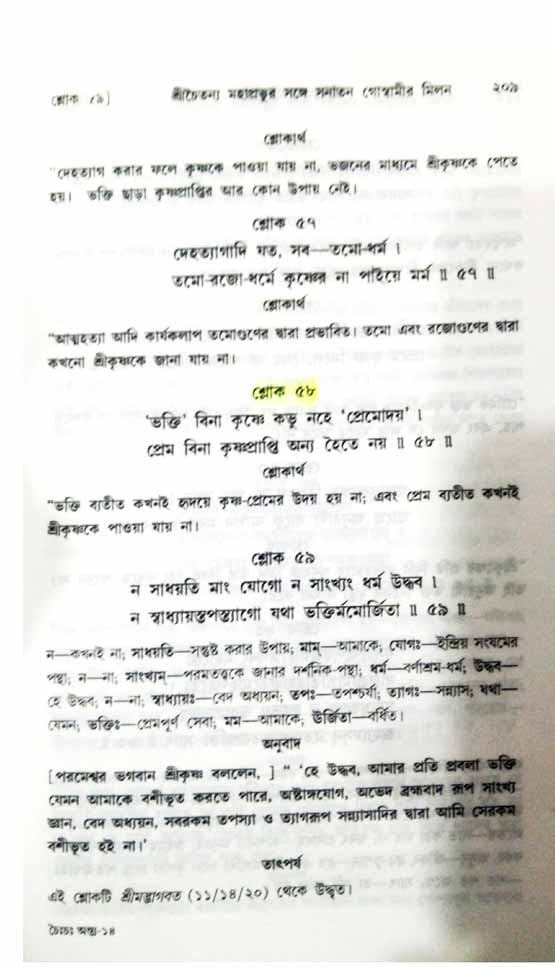 শ্লোক ৫৯]
শ্রীচৈতন্য মহাপ্রভুর সঙ্গে সনাতন গোস্বামীর মিলন
২০৯
শ্লোকার্থ
"দেহত্যাগ করার ফলে কৃষ্ণকে পাওয়া যায় না, ভজনের মাধ্যমে শ্রীকৃষ্ণকে পেতে
হয়। ভক্তি ছাড়া কৃষ্ণপ্রাপ্তির আর কোন উপায় নেই।
শ্লোক ৫৭
দেহত্যাগাদি যত, সব—তমো-ধর্ম ।
তমো-রজো-ধর্মে কৃষ্ণের না পাইয়ে মর্ম ॥ ৫৭ ॥
শ্লোকার্থ
"আত্মহত্যা আদি কার্যকলাপ তমোগুণের দ্বারা প্রভাবিত। তমো এবং রজোগুণের দ্বারা
কখনো শ্রীকৃষ্ণকে জানা যায় না।
শ্লোক ৫৮
'ভক্তি' বিনা কৃষ্ণে কভু নহে 'প্রেমোদয়' ।
প্রেম বিনা কৃষ্ণপ্রাপ্তি অন্য হৈতে নয় ॥ ৫৮ ॥
শ্লোকার্থ
"ভক্তি ব্যতীত কখনই হৃদয়ে কৃষ্ণ-প্রেমের উদয় হয় না; এবং প্রেম ব্যতীত কখনই
শ্রীকৃষ্ণকে পাওয়া যায় না।
শ্লোক ৫৯
ন সাধয়তি মাং যোগো ন সাংখ্যং ধর্ম উদ্ধব ।
ন স্বাধ্যায়স্তপস্ত্যাগো যথা ভক্তির্মমোর্জিতা ॥ ৫৯ ॥
ন—কখনই না; সাধয়তি—সন্তুষ্ট করার উপায়; মাম্—আমাকে; যোগঃ—ইন্দ্রিয় সংযমের
পন্থা; ন—না; সাংখ্যম্—পরমতত্ত্বকে জানার দার্শনিক-পন্থা; ধর্ম—বর্ণাশ্রম-ধর্ম; উদ্ধব—
হে উদ্ধব; ন—না; স্বাধ্যায়ঃ—বেদ অধ্যয়ন; তপঃ—তপশ্চর্যা; ত্যাগঃ—সন্ন্যাস; যথা—
যেমন; ভক্তিঃ—প্রেমপূর্ণ সেবা; মম—আমাকে; ঊর্জিতা—বর্ধিত।
অনুবাদ
[পরমেশ্বর ভগবান শ্রীকৃষ্ণ বললেন, ] " 'হে উদ্ধব, আমার প্রতি প্রবলা ভক্তি
যেমন আমাকে বশীভূত করতে পারে, অষ্টাঙ্গযোগ, অভেদ ব্রহ্মবাদ রূপ সাংখ্য
জ্ঞান, বেদ অধ্যয়ন, সবরকম তপস্যা ও ত্যাগরূপ সন্ন্যাসাদির দ্বারা আমি সেরকম
বশীভূত হই না।'
তাৎপর্য
এই শ্লোকটি শ্রীমদ্ভাগবত (১১/১৪/২০) থেকে উদ্ধৃত।
চৈঃচঃ অন্ত্য-১৪